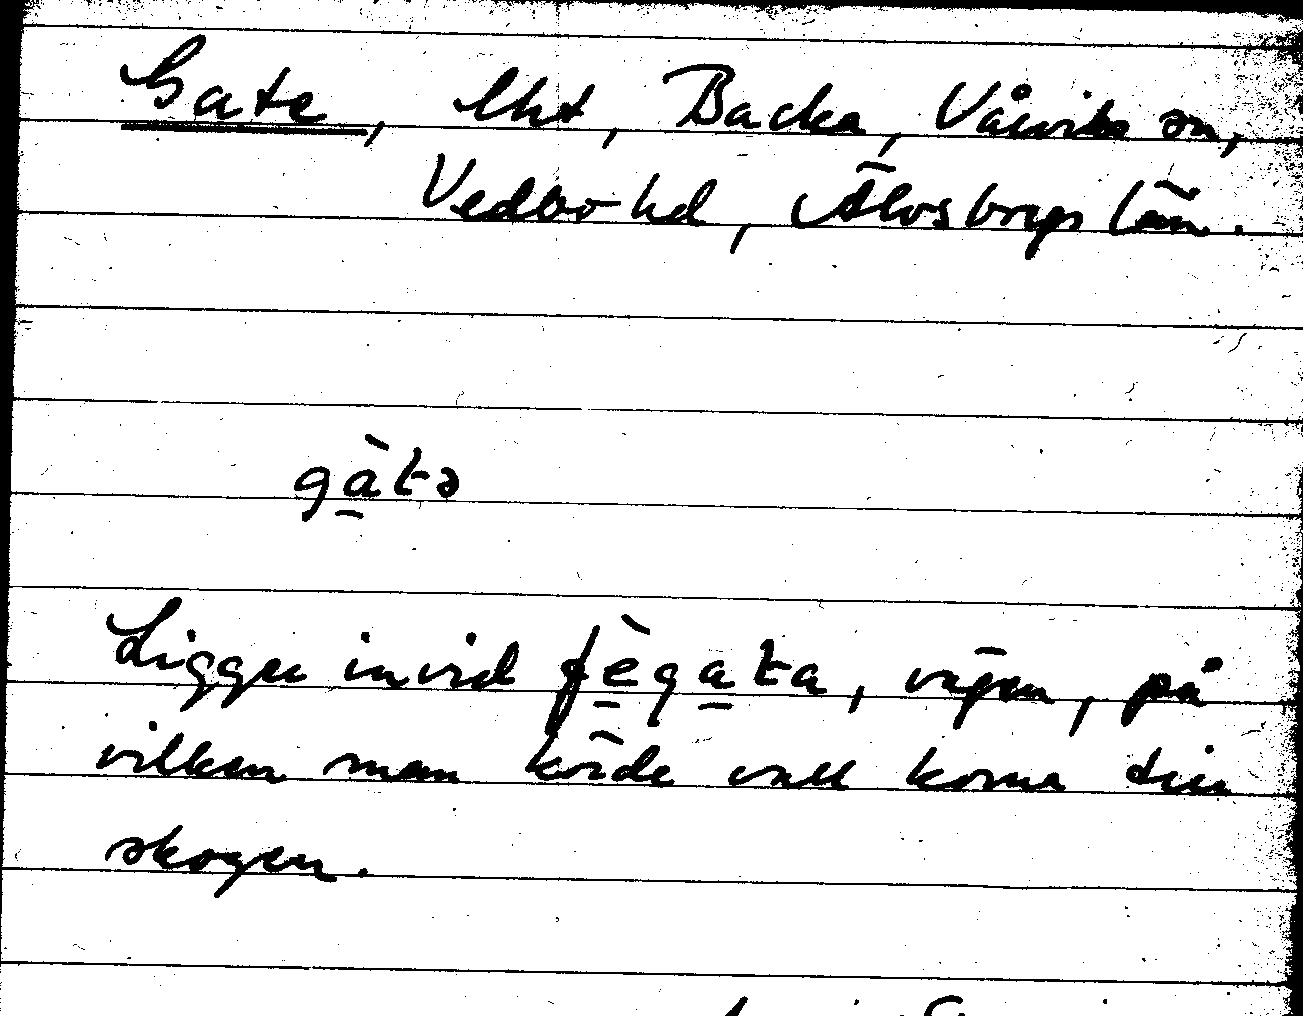 Gate, lht, Backa, Vårviks sn,
Vedbo hd, Älvsborgs län.
gàtə
Ligger invid fègata, vägen, på
vilken man körde vall korna till
skogen.